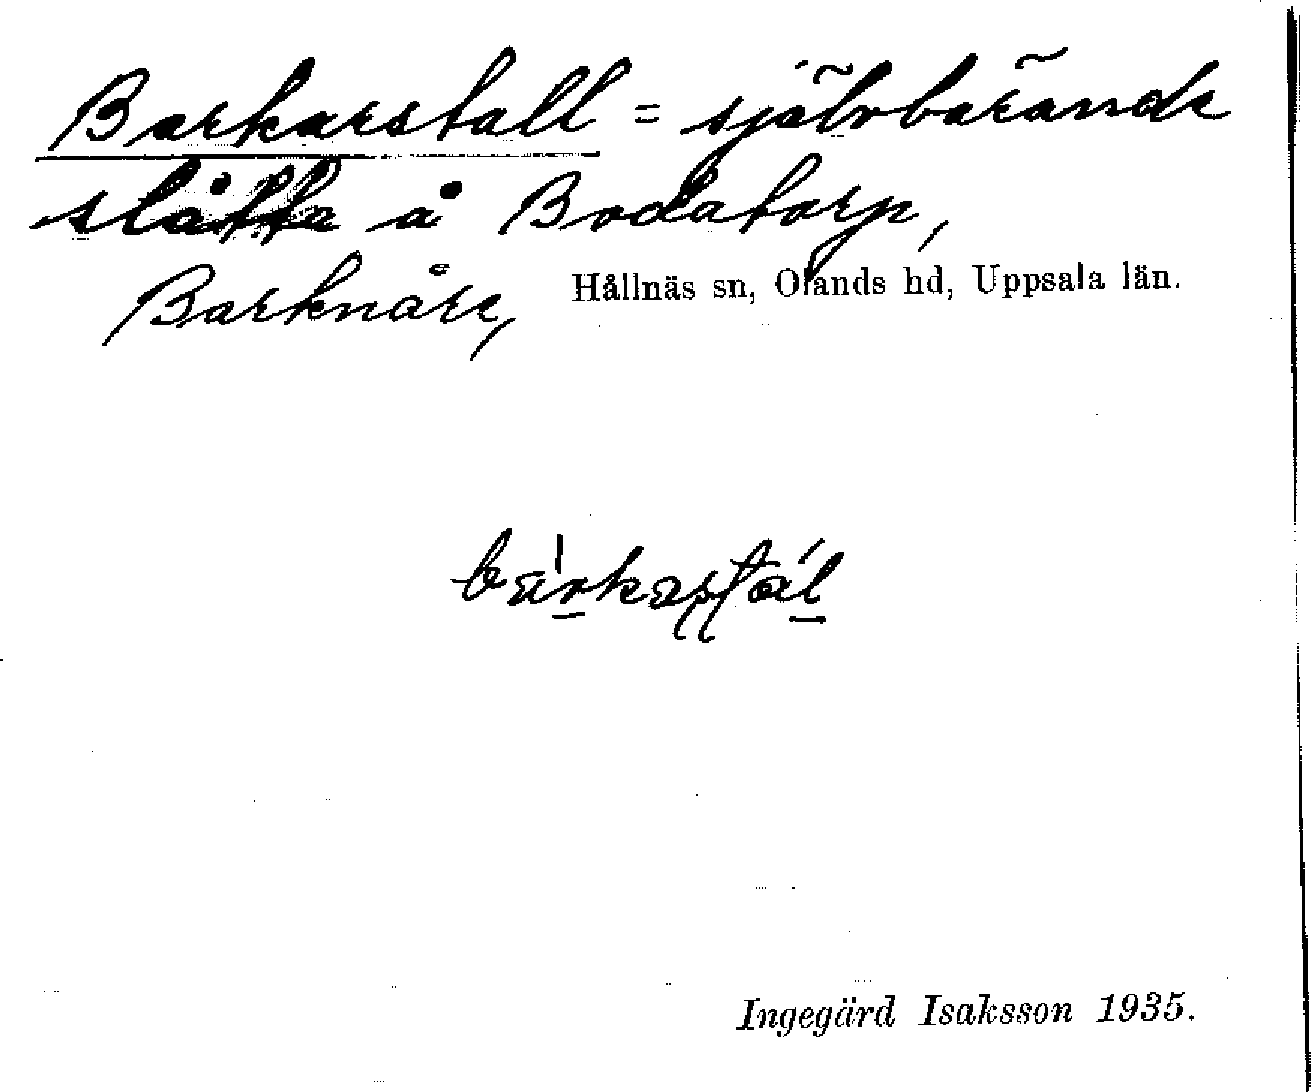 Barkarstall = självbärande
slåtte å Bodatorp,
Barknåre, Hållnäs sn, Olands hd, Uppsala län.
Ingegärd Isaksson 1935.